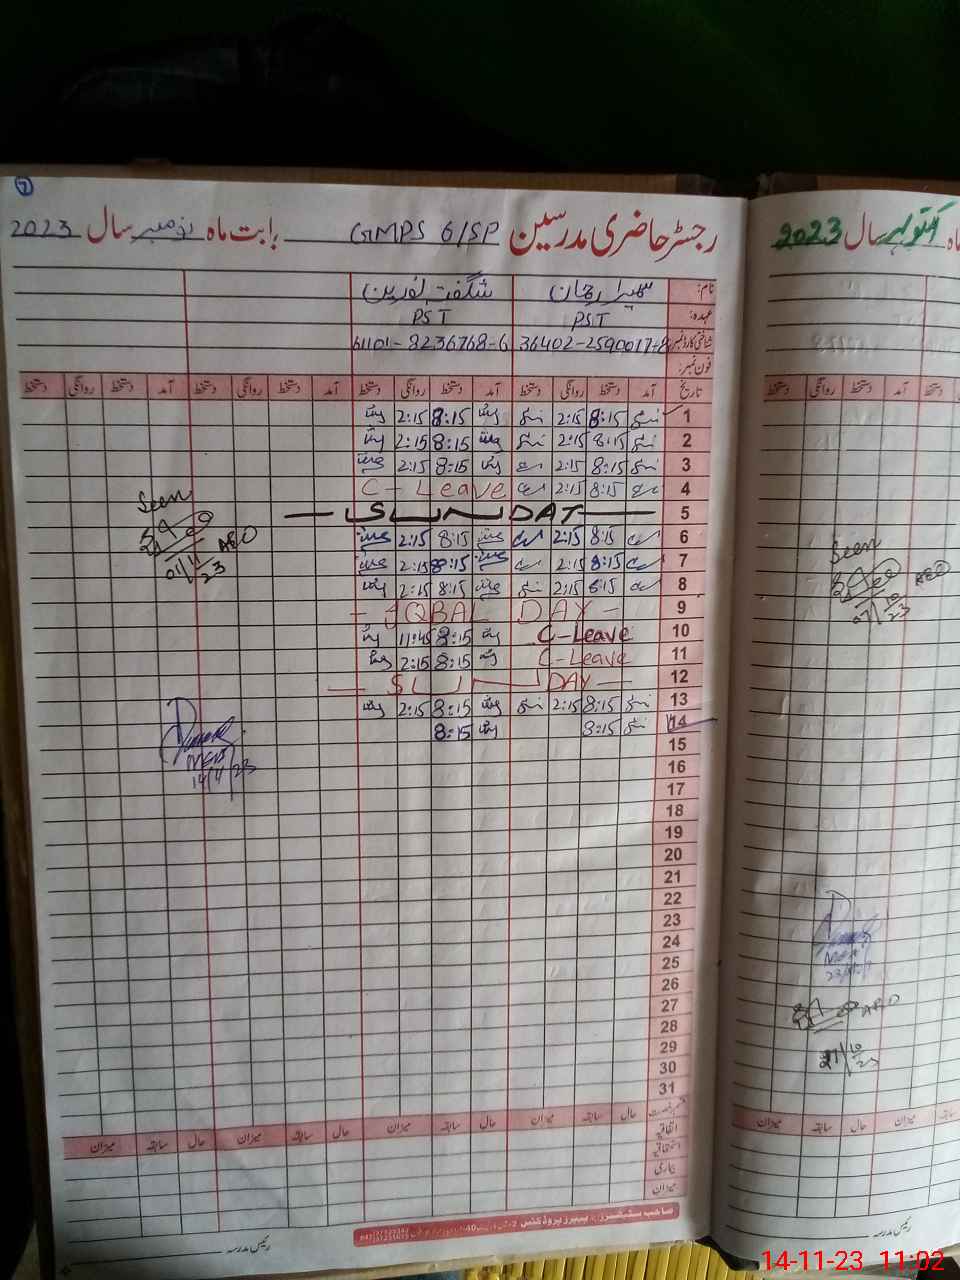 7
رجسٹر حاضری مدرسین GMPS 6/SP بابت ماہ نومبر سال 2023
نام: سمیرا رحمان شگفتہ نورین
عہدہ: PST PST
شناختی کارڈ نمبر: 61101-8236768-6
فون نمبر:
تاریخ آمد دستخط روانگی دستخط آمد دستخط روانگی دستخط آمد دستخط روانگی دستخط آمد دستخط روانگی دستخط
1 8:15 2:15 8:15 2:15
2 8:15 2:15 8:15 2:15
3 8:15 2:15 8:15 2:15
4 8:15 2:15 C-Leave
5 SUNDAY
6 8:15 2:15 8:15 2:15
7 8:15 2:15 8:15 2:15
8 8:15 2:15 8:15 2:15
9 IQBAL DAY
10 C-Leave 8:15 11:45
11 C-Leave 8:15 2:15
12 SUNDAY
13 8:15 2:15 8:15 2:15
14 8:15 8:15
15
16
17
18
19
20
21
22
23
24
25
26
27
28
29
30
31
Seen
AEO
01/11/23
MEA
14/11/23
قسم رخصت حال سابقہ میزان حال سابقہ میزان حال سابقہ میزان حال سابقہ میزان
اتفاقیہ
استحقاقیہ
بیماری
میزان
رئیس مدرسہ
ماہ اکتوبر سال 2023
دستخط آمد دستخط روانگی دستخط
Seen
AEO
MEA
AEO
حال سابقہ میزان
رئیس مدرسہ
14-11-23 11:02